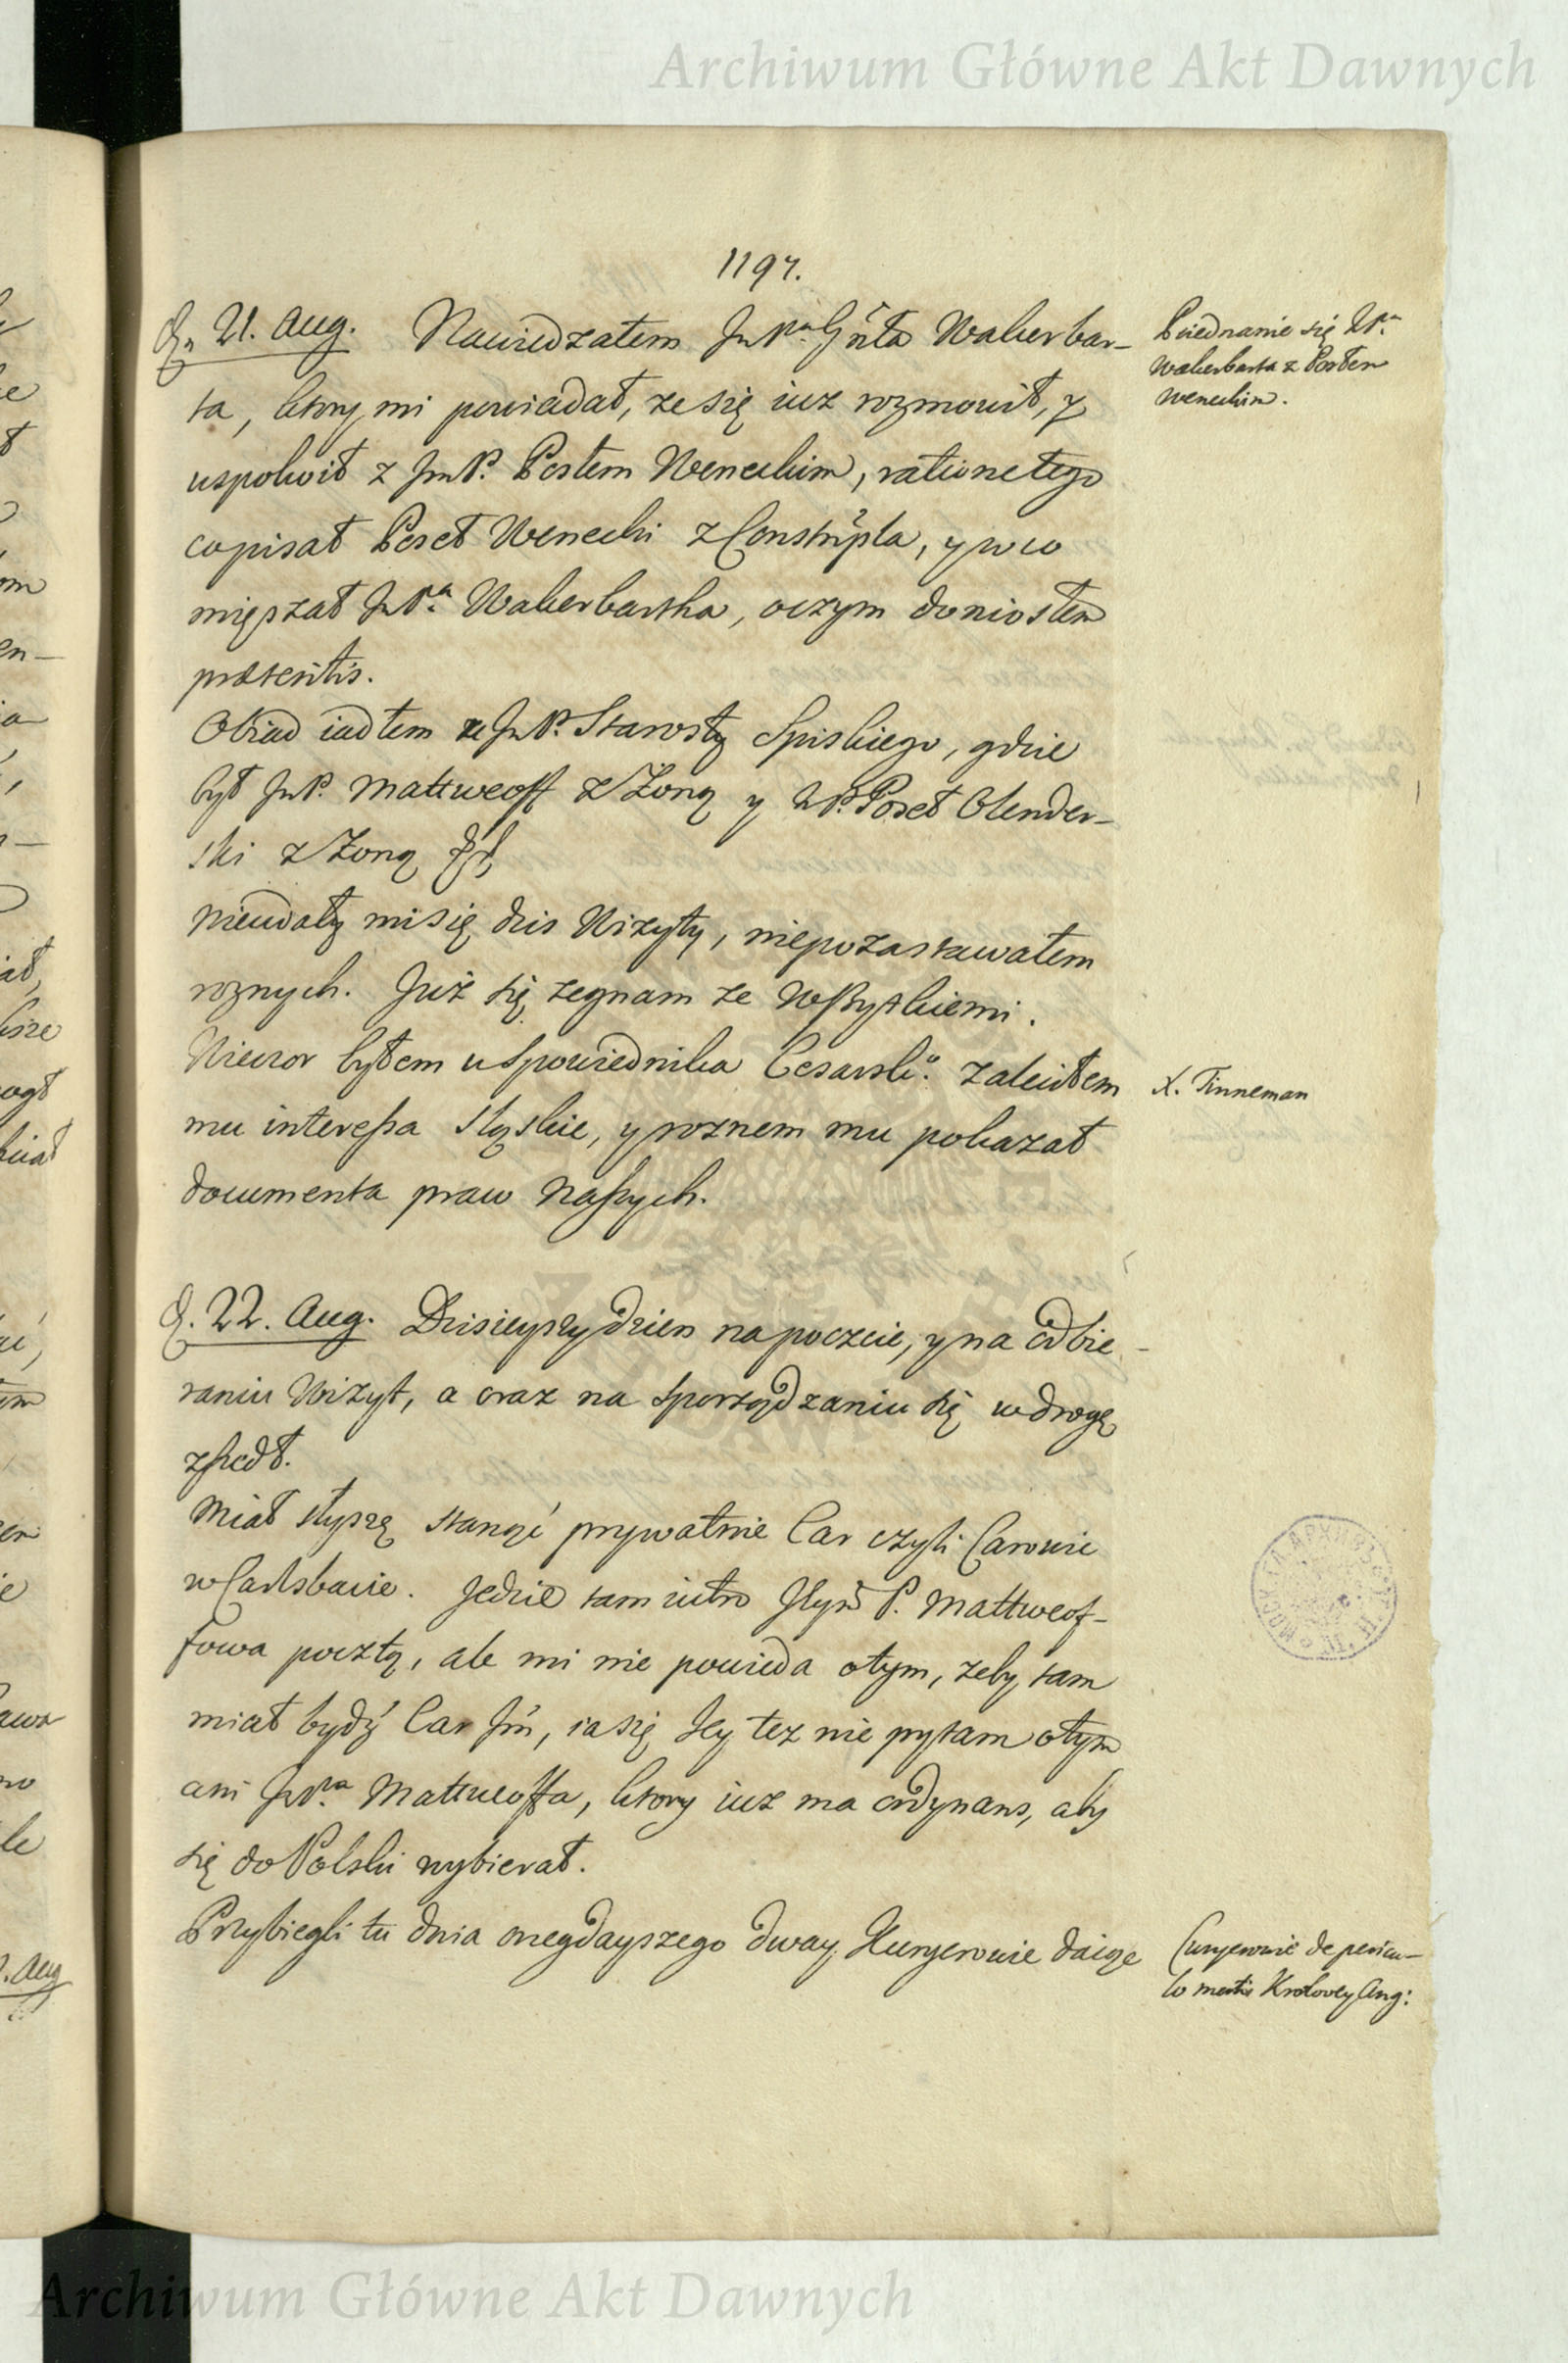 Archiwum Główne Akt Dawnych
1197.
D. 21. Aug. Nawiedzałem JmPna Gnła Wakerbar-
ta, ktory mi powiadał, ze się iuz rozmowił, y
uspokoił z JmP. Posłem Weneckim, ratione tego
co pisał Poseł Wenecki z Constnpla, y w co
mięszał JmPa. Wakerbartha, o czym doniosłem
præsentis.
Obiad iadłem u JmP. Starosty Spiskiego, gdzie
był JmP. Mattweoff z Żoną y JmP. Poseł Olender-
ski z Żoną
Nieudały mi się dzis Wizyty, niepozastawałem
roznych. Już się zegnam ze Wszystkiemi.
Wieczor byłem u Spowiednika Cesarski: Zaleciłem
mu interessa Sląskie, y roznem mu pokazał
documenta praw naszych.
D. 22. Aug. Dzisieyszy dzien na poczcie, y na odbie-
raniu Wizyt, a oraz na sporządzaniu się w drogę
zszedł.
Miał słyszę stanąć prywatnie Car czyli Carowic
w Carlsbacie. Jedzie tam iutro Jey P. Mattweof-
fowa pocztą, ale mi nie powieda o tym, zeby tam
miał bydź Car Jm, ia się Jey tez nie pytam o tym
ani JmPna. Mattweoffa, ktory iuz ma ordynans, aby
się do Polski wybierał.
Przybiegli tu dnia onegdayszego dway Kuryerowie daiąc
Poiednanie się JmPa.
Wakerbarta z Posłem
Weneckim.
X. Tinneman
Curyerowie de pericu-
lo mortis Krolowey Ang:
Archiwum Główne Akt Dawnych